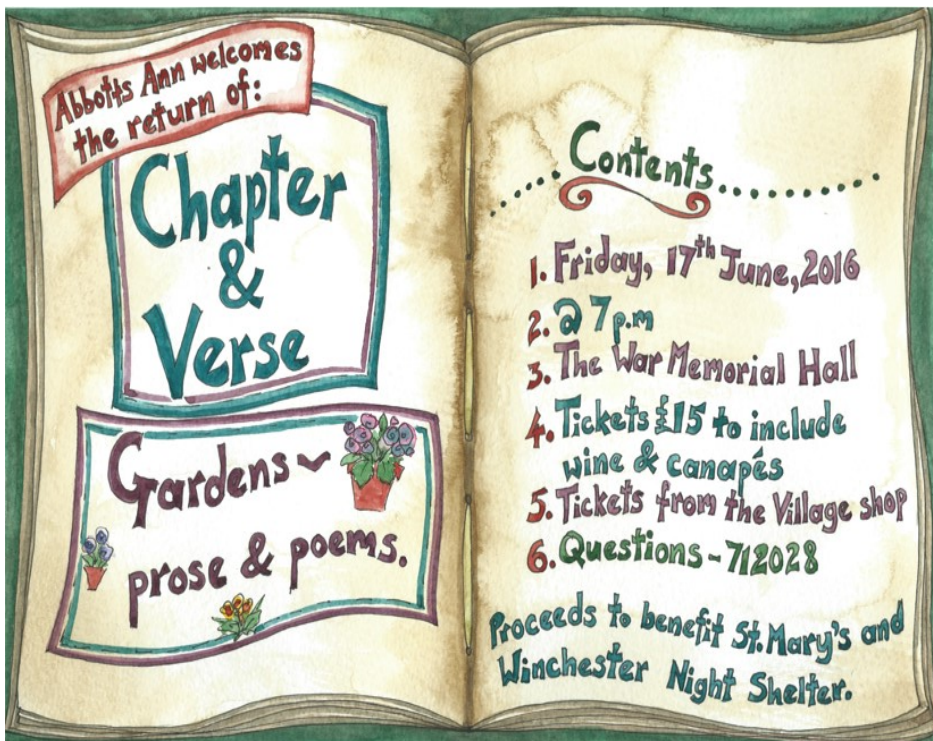 Abbotts Ann welcomes
the return of:
Chapter
&
Verse
Gardens ~
prose & poems.
Contents
1. Friday, 17th June, 2016
2. @ 7p.m
3. The War Memorial Hall
4. Tickets £15 to include
wine & canapés
5. Tickets from the Village shop
6. Questions - 712028
Proceeds to benefit St. Mary's and
Winchester Night Shelter.